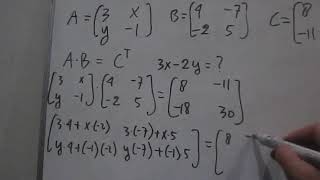 A = (3 x y -1) B = (4 -7 -2 5) C = (8 -11
A·B = Cᵀ 3x-2y = ?
[3 x y -1]·[4 -7 -2 5] = [8 -11 -18 30]
[3·4+x·(-2) 3(-7)+x·5 y·4+(-1)(-2) y(-7)+(-1)5] = [8